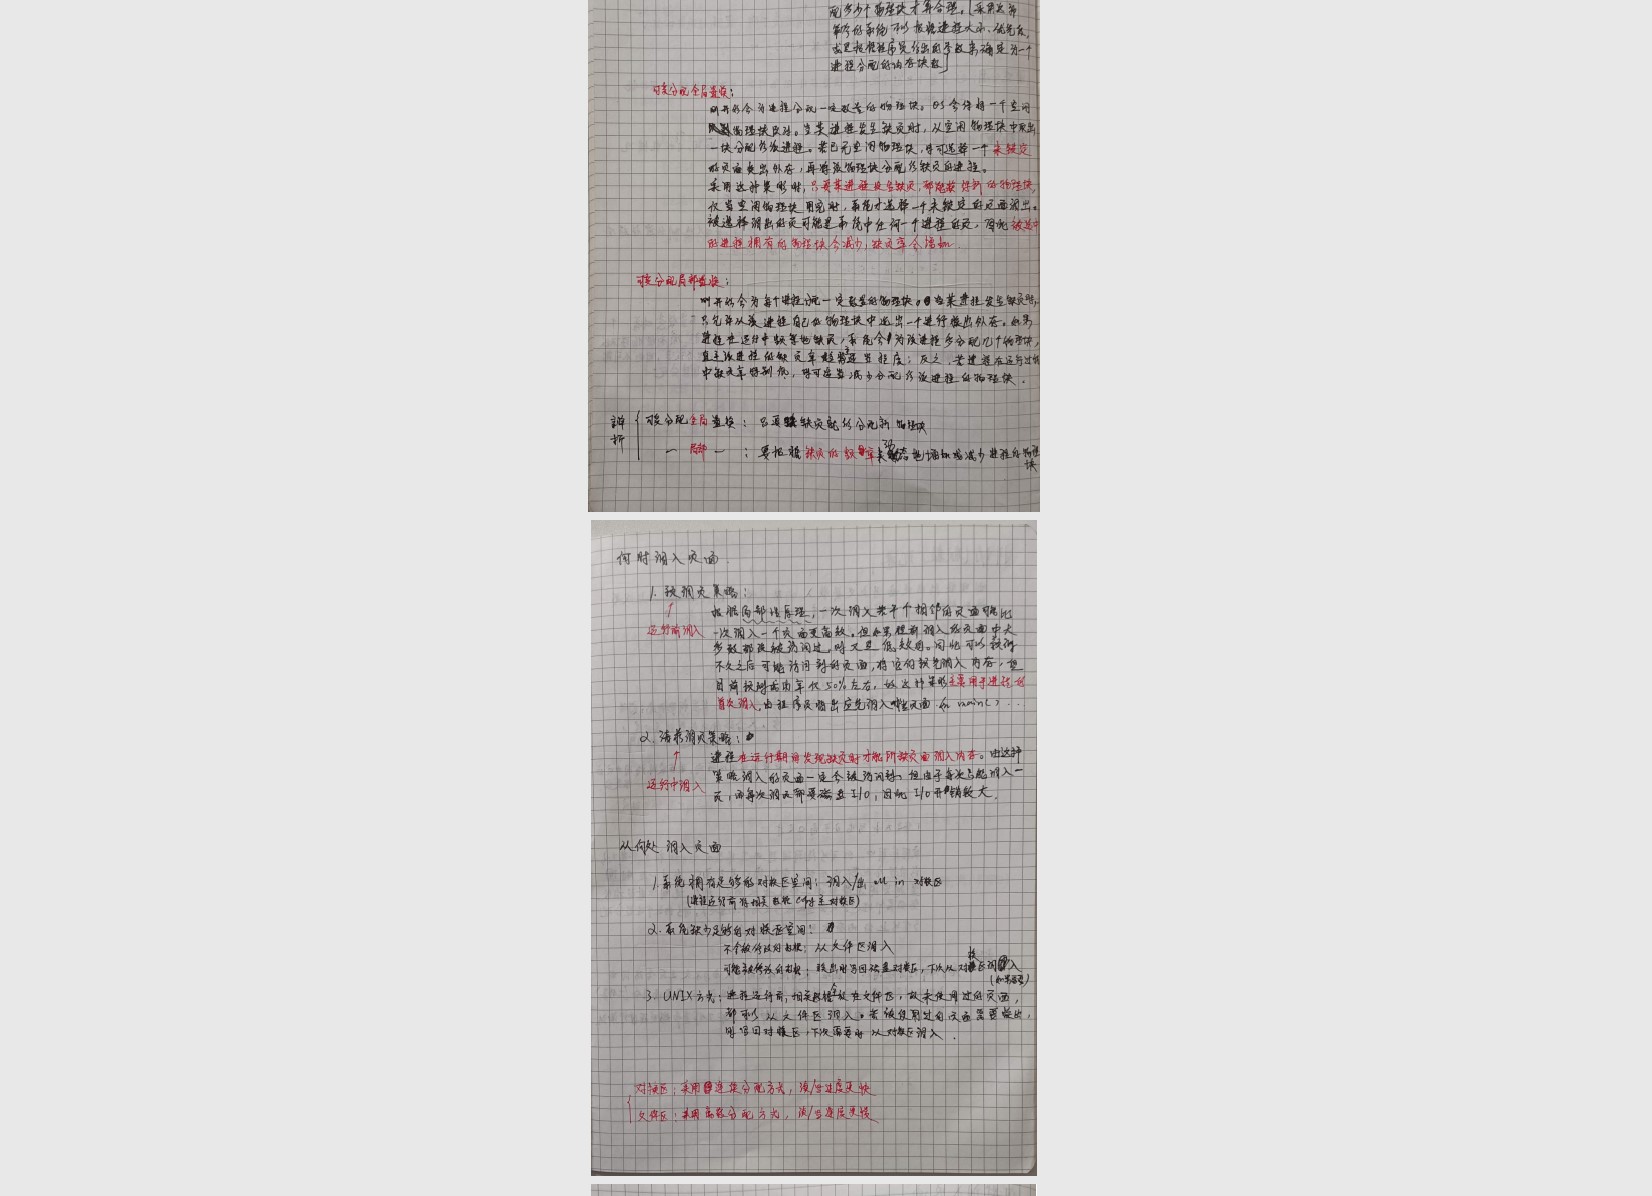 配多少个物理块才算合理。[采用这种
策略的系统可以根据进程大小、优先级、
或是根据程序员给出的参数来确定为一个
进程分配的内存块数]
可变分配全局置换:
刚开始会为进程分配一定数量的物理块。OS会保持一个空闲
物理块队列。当某进程发生缺页时,从空闲物理块中取出
一块分配给该进程。若已无空闲物理块,则可选择一个未锁定
的页面换出外存,再将该物理块分配给缺页的进程。
采用这种策略时,只要某进程发生缺页,都能获得新的物理块,
仅当空闲物理块用完时,系统才选择一个未锁定的页面调出。
被选择调出的页可能是系统中任何一个进程的页,因此被选中
的进程拥有的物理块会减少,缺页率会增加.
可变分配局部置换:
刚开始会为每个进程分配一定数量的物理块。当某进程发生缺页时,
只允许从该进程自己的物理块中选出一个进行换出外存。如果
进程在运行中频繁地缺页,系统会为该进程多分配几个物理块,
直至该进程的缺页率趋势适当程度;反之,若进程在运行过程
中缺页率特别低,则可适当减少分配给该进程的物理块.
辨析 可变分配全局置换:只要缺页就给分配新物理块
— 局部 — :要根据缺页的频率来动态地增加或减少进程的物理块
何时调入页面
1. 预调页策略:
根据局部性原理,一次调入若干个相邻的页面可能比
运行前调入 一次调入一个页面更高效。但如果提前调入的页面中大
多数都没被访问过,则又是低效的。因此可以预测
不久之后可能访问到的页面,将它们预先调入内存,但
目前预测成功率仅50%左右。故这种策略主要用于进程的
首次调入,由程序员指出应先调入哪些页面 如main()...
2. 请求调页策略:
进程在运行期间发现缺页时才能所缺页面调入内存。由这种
策略调入的页面一定会被访问到,但由于每次只能调入一
运行中调入 页,而每次调页都要磁盘I/O,因此I/O开销较大.
从何处调入页面
1. 系统拥有足够的对换区空间:调入/出 all in 对换区
(进程运行前将相关数据copy至对换区)
2. 系统缺少足够的对换区空间:
不会被修改的数据:从文件区调入
可能被修改的数据:换出时写回磁盘对换区,下次从对换区调入
(如果需要)
3. UNIX方式:进程运行前,相关数据全放在文件区,故未使用过的页面,
都可以从文件区调入。若被使用过的页面需要换出,
则写回对换区,下次需要时从对换区调入.
对换区:采用连续分配方式,读/写速度更快
文件区:采用离散分配方式,读/写速度更慢